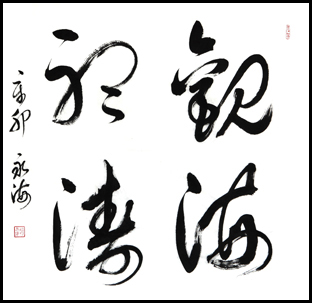 觀海
聽濤
辛卯 永海